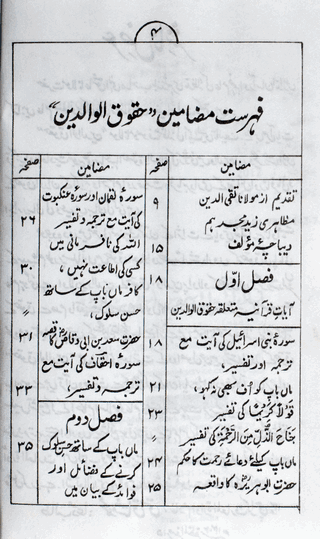 ۴
فہرست مضامین "حقوق الوالدین"
مضامین صفحہ
تقدیم از مولانا تقی الدین ۹
مظاہری زید مجدہم
دیباچۂ مؤلف ۱۵
فصل اوّل ۱۸
آیات قرآنیہ متعلقہ حقوق الوالدین
سورۂ بنی اسرائیل کی آیت مع ۱۸
ترجمہ اور تفسیر،
ماں باپ کو اُف بھی نہ کہو، ۲۱
قَوْلًا كَرِيْمًا کی تفسیر ۲۳
جَنَاحَ الذُّلِّ مِنَ الرَّحْمَةِ کی تفسیر 〃
ماں باپ کیلئے دعائے رحمت کا حکم ۲۴
حضرت ابو ہریرہؓ کا واقعہ ۲۵
مضامین صفحہ
سورۂ لقمان اور سورہ عنکبوت
کی آیت مع ترجمہ و تفسیر ۲۶
اللہ کی نافرمانی میں
کسی کی اطاعت نہیں، ۳۰
کافر ماں باپ کے ساتھ
حسن سلوک، 〃
حضرت سعد بن ابی وقاصؓ کا قصہ ۳۱
سورۂ احقاف کی آیت مع
ترجمہ و تفسیر، ۳۳
فصل دوم
ماں باپ کے ساتھ حسن سلوک ۳۵
کرنے کے فضائل اور
فوائد کے بیان میں